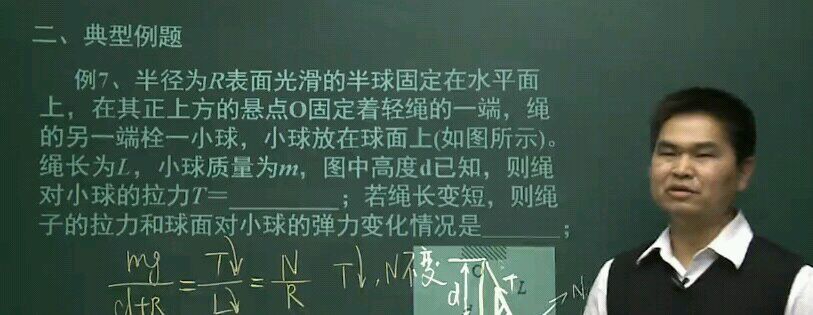 二、典型例题
例7、半径为R表面光滑的半球固定在水平面
上，在其正上方的悬点O固定着轻绳的一端，绳
的另一端栓一小球，小球放在球面上(如图所示)。
绳长为L，小球质量为m，图中高度d已知，则绳
对小球的拉力T＝________；若绳长变短，则绳
子的拉力和球面对小球的弹力变化情况是______；
mg/d+R = T↓/L↓ = N/R T↓, N不变
O
d
T
L
N